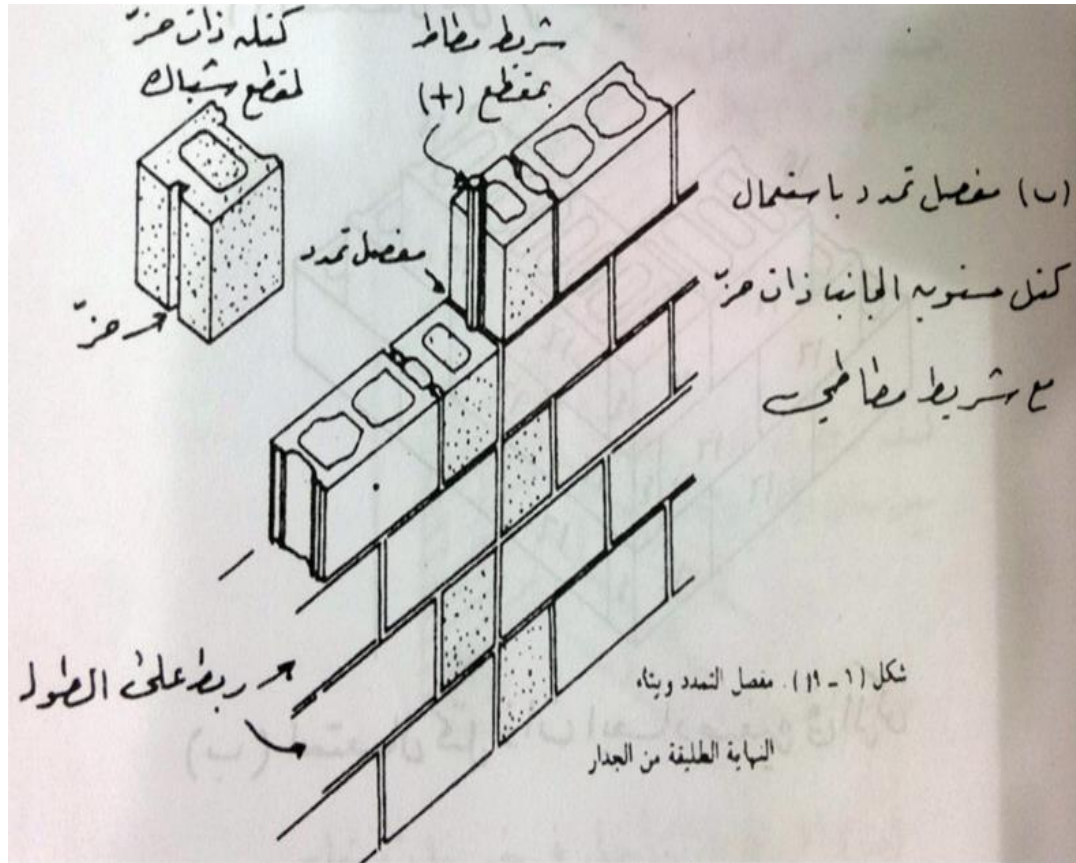 كتله ذات حزّ
لمقطع شباك
شريط مطاط
بمقطع (+)
(ب) مفصل تمدد باستعمال
كتل مستويه الجانب ذات حزّ
مع شريط مطاطي
مفصل تمدد
حزّ
ربط على الطول
شكل (١ - ١٩). مفصل التمدد وبناء
النهاية الطليقة من الجدار